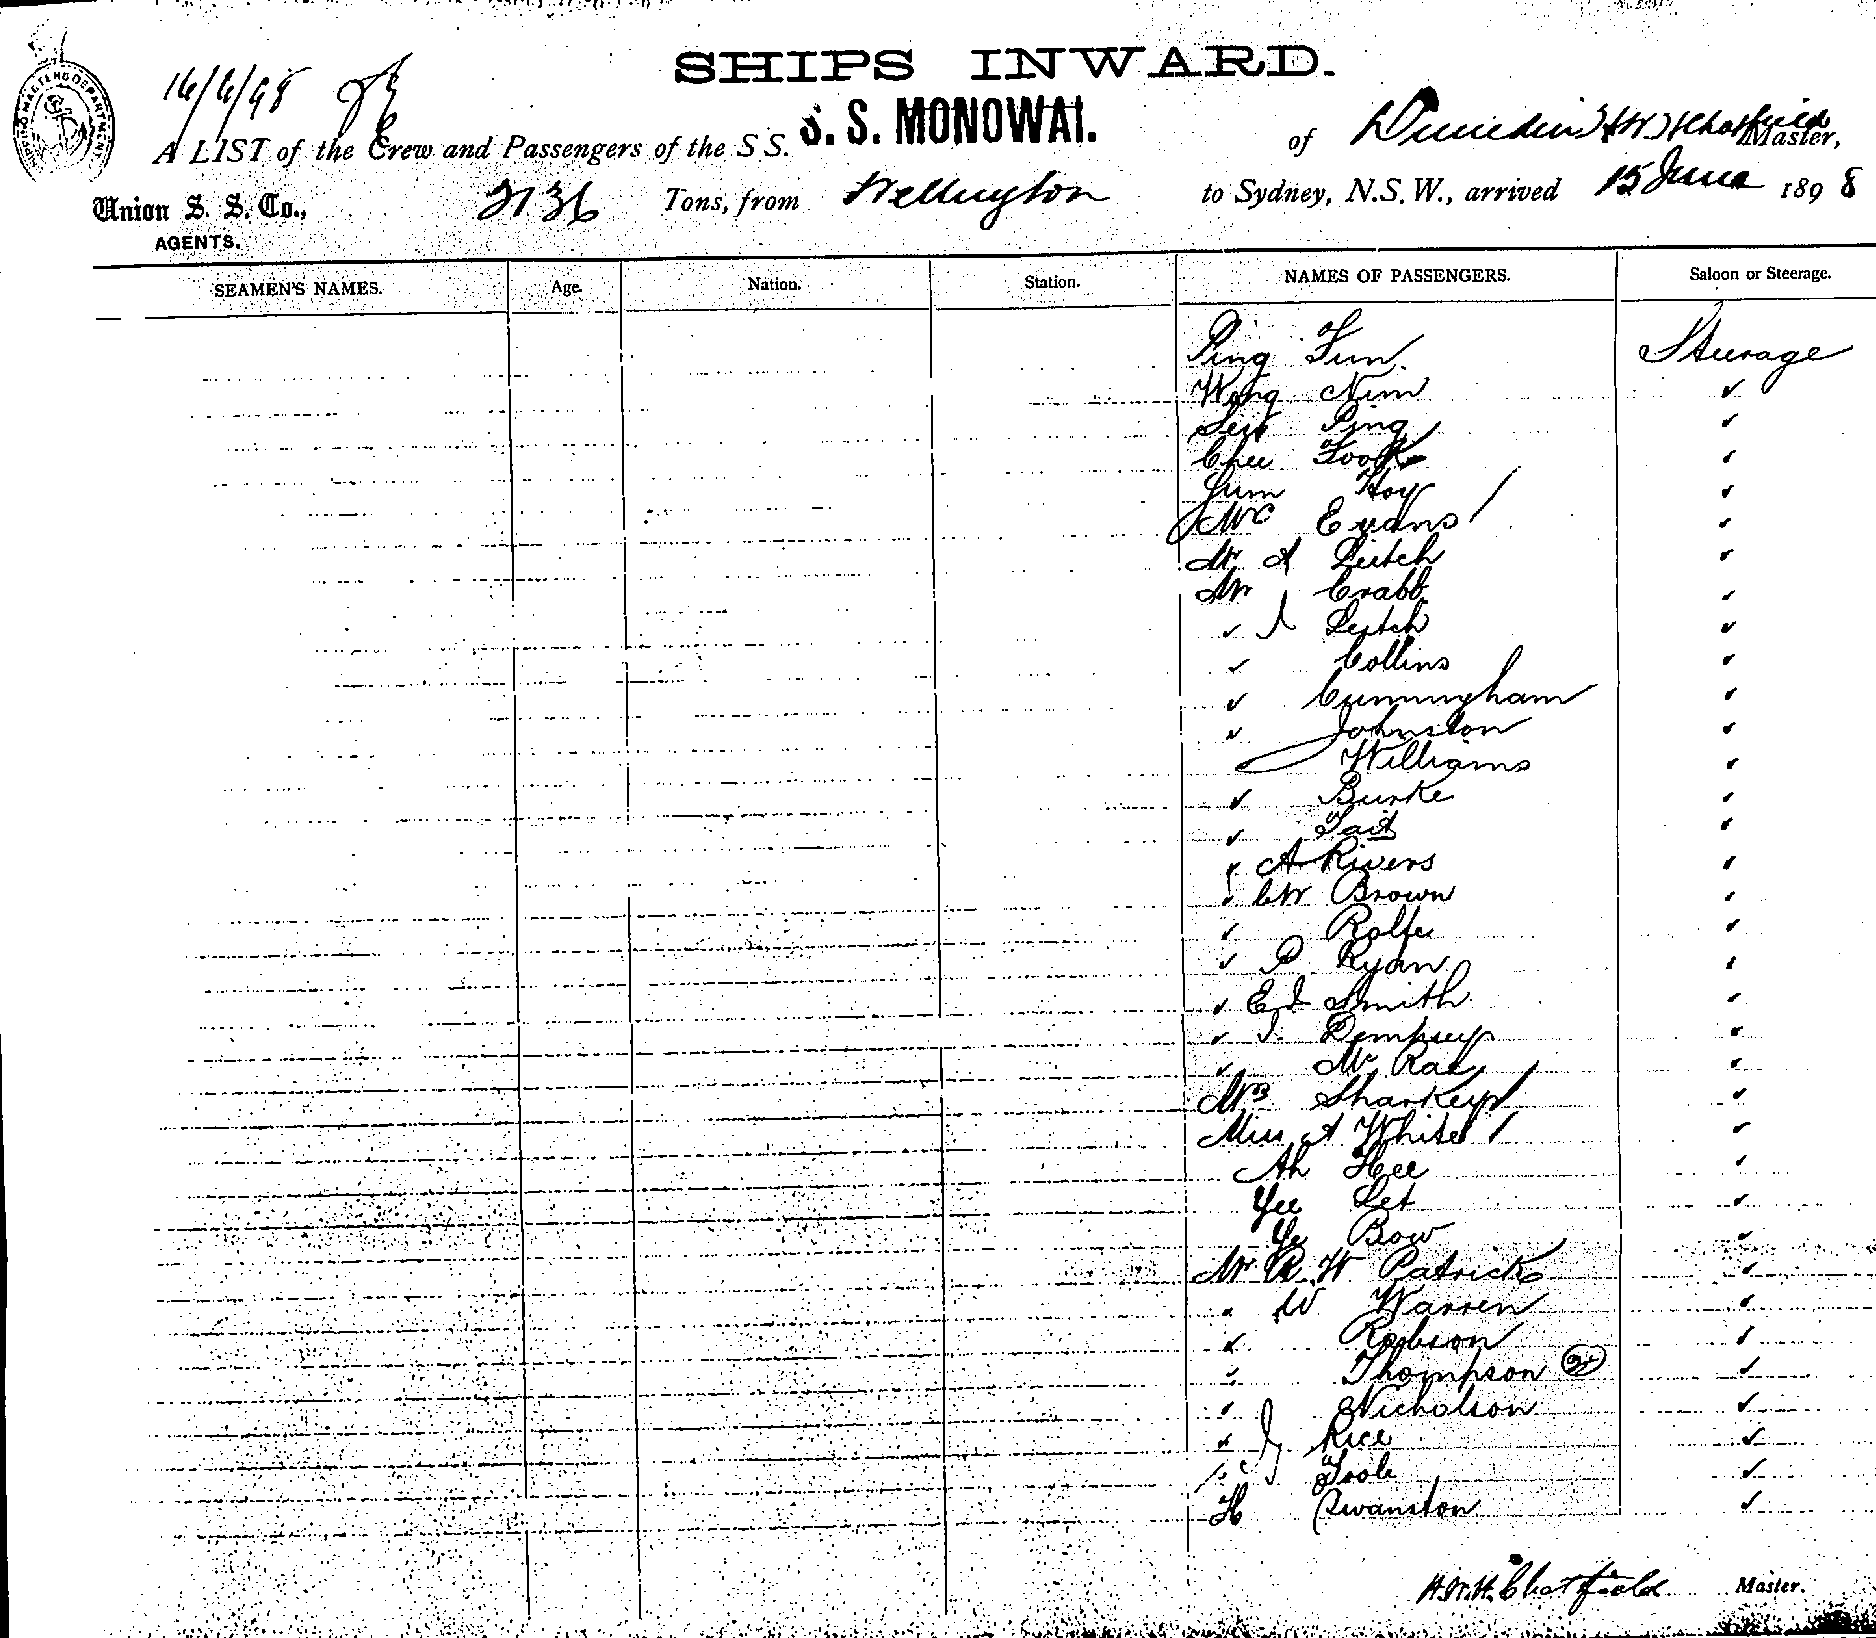 SHIPS INWARD.
16/6/98
A LIST of the Crew and Passengers of the S S. S. S. MONOWAI. of Dunedin H W H Chatfield Master,
Union S. S. Co., 2136 Tons, from Wellington to Sydney, N.S.W., arrived 15 June 1898
AGENTS.
SEAMEN'S NAMES. Age. Nation. Station. NAMES OF PASSENGERS. Saloon or Steerage.
Ping Fun Steerage
Wong Nim ✓
Ping ✓
Chee Fook ✓
Hoy ✓
Evans ✓
Mr A Leitch ✓
Mr Crabb ✓
✓ J Leitch ✓
✓ Collins ✓
✓ Cunningham ✓
✓ Johnston ✓
Williams ✓
✓ Burke ✓
✓ Tait ✓
✓ A Rivers ✓
✓ CW Brown ✓
✓ Rolfe ✓
✓ P Ryan ✓
✓ E J Smith ✓
✓ J. Dempsey ✓
✓ Mc Rae ✓
Mrs Sharkey ✓
Miss A White ✓
Ah Hee ✓
Yee Let ✓
Ye Bow ✓
Mr R. W Patrick ✓
" W Warren ✓
✓ Robson ✓
" Thompson 2 ✓
✓ Nicholson ✓
✓ J Rice ✓
J Toole ✓
H Swanston ✓
H.W.H. Chatfield Master.